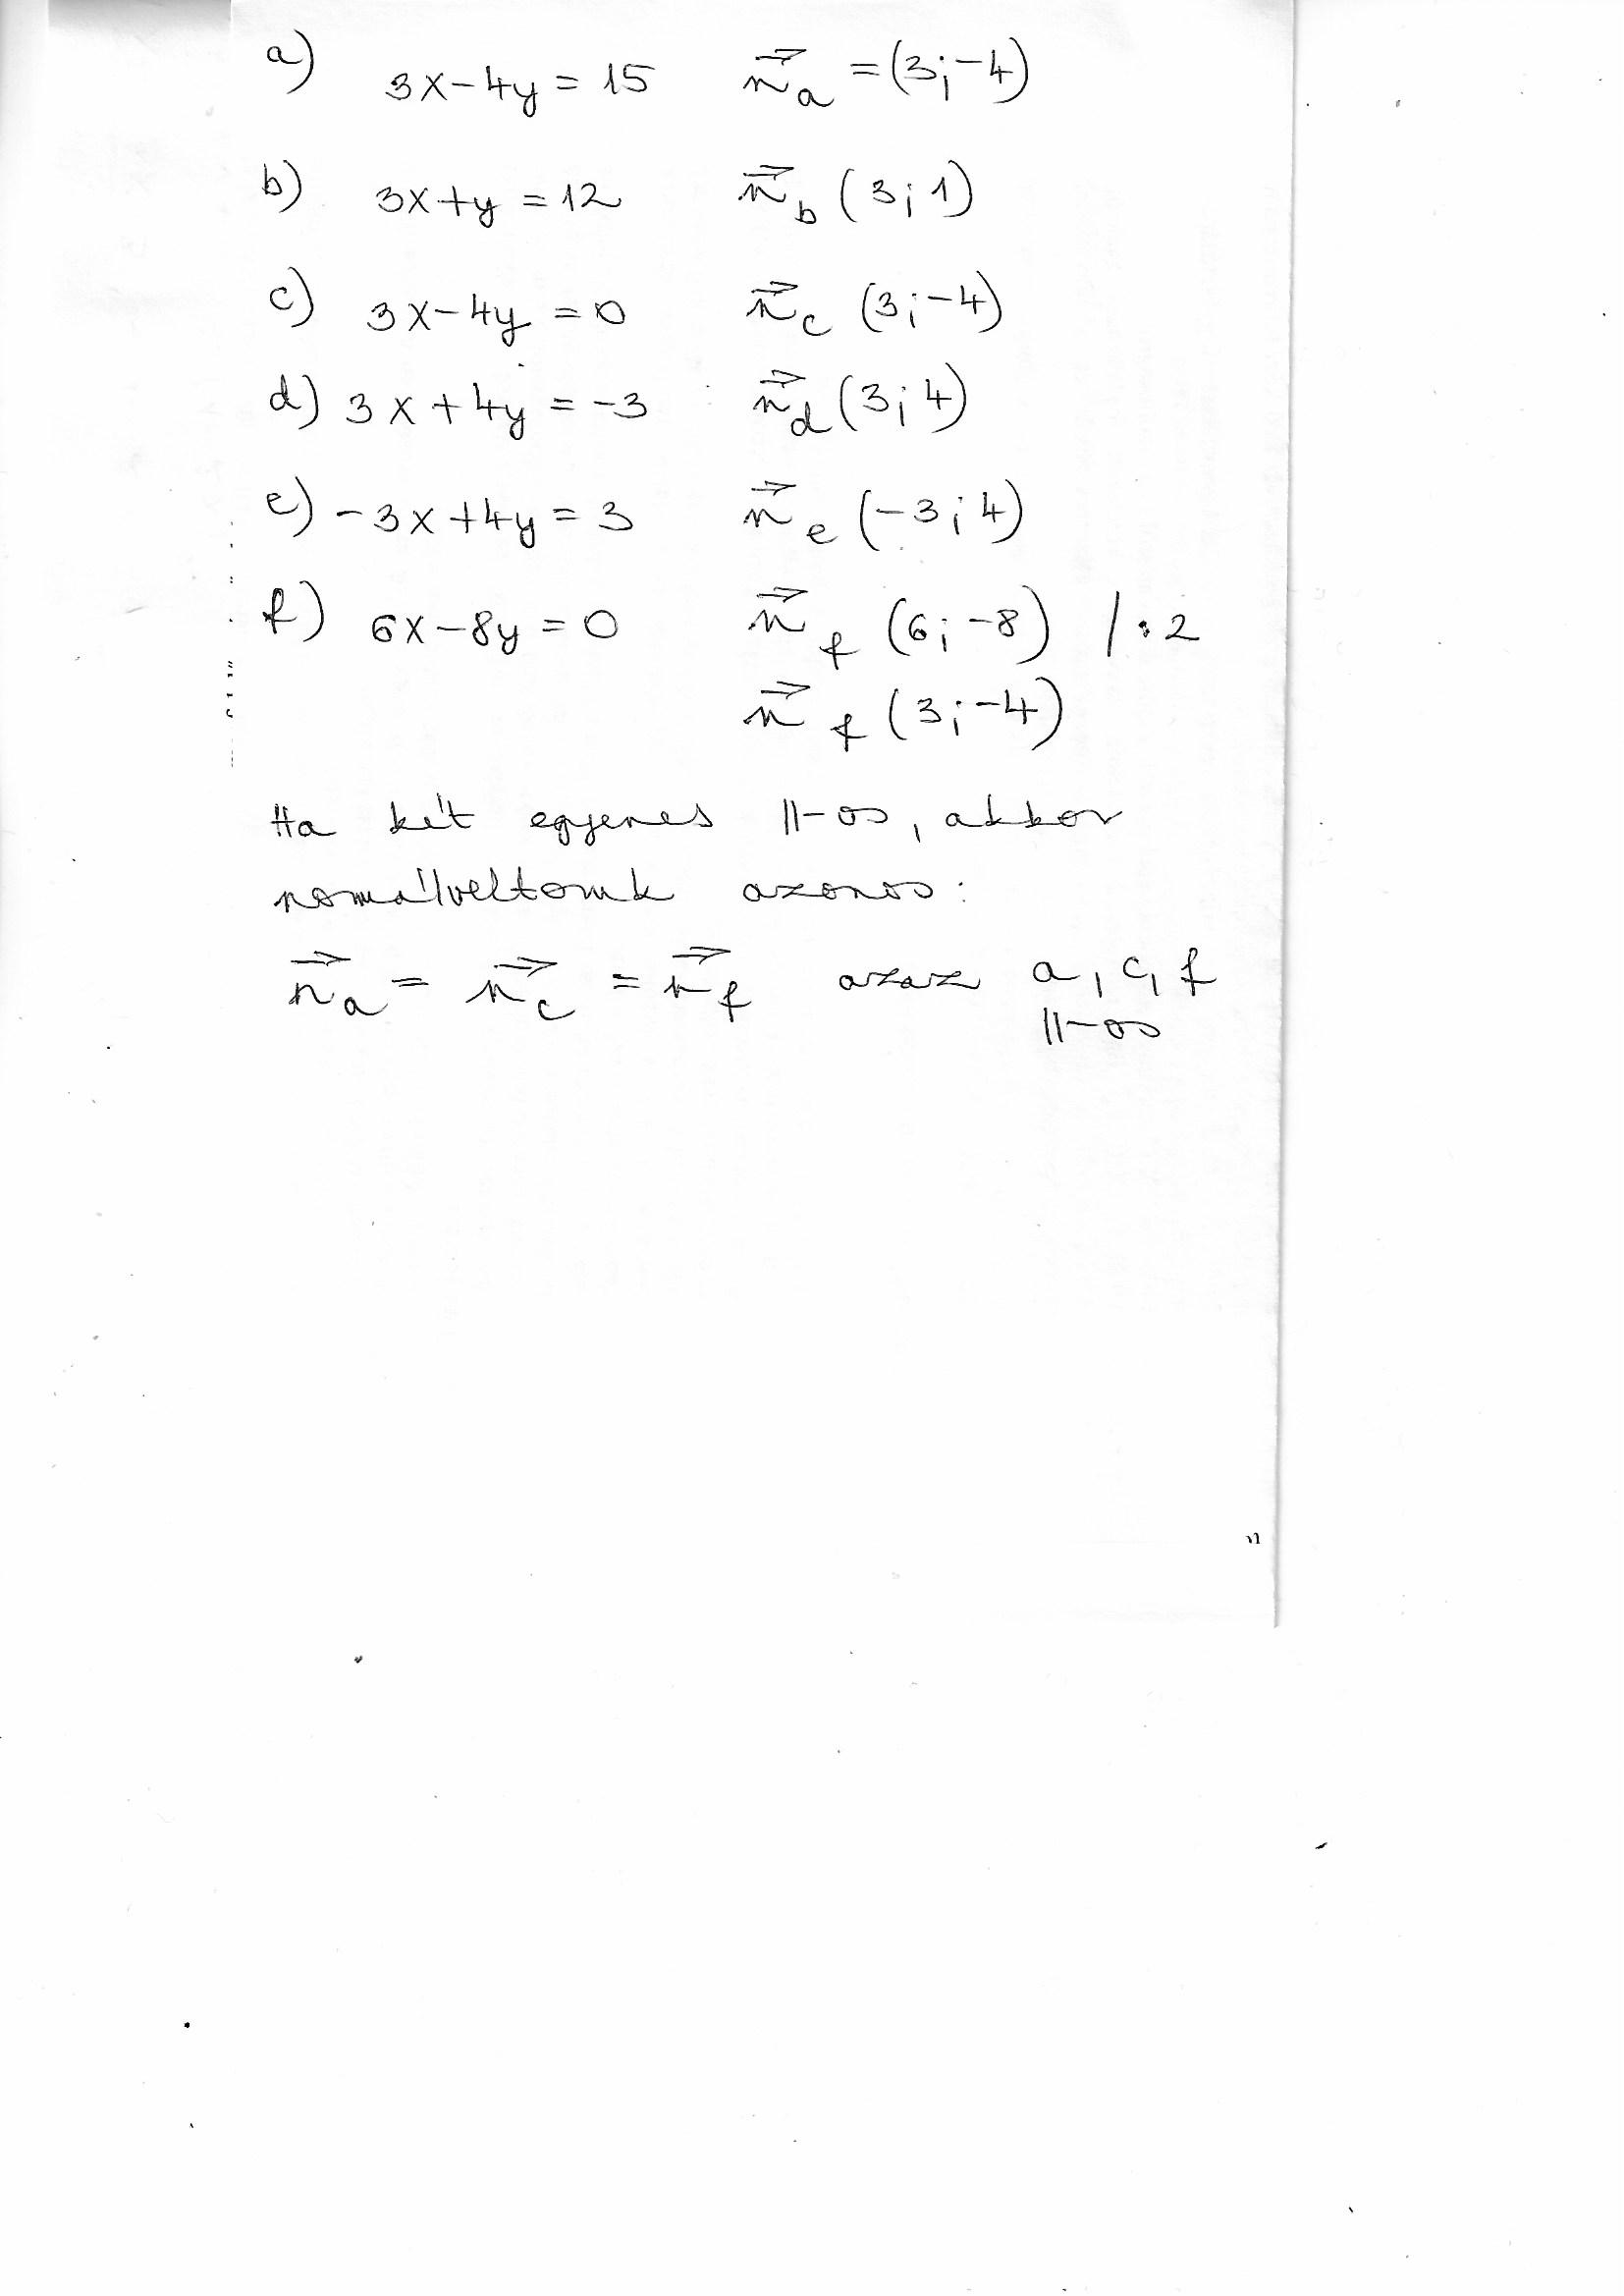 a) 3x-4y = 15 n⃗a = (3;-4)
b) 3x+y = 12 n⃗b (3;1)
c) 3x-4y = 0 n⃗c (3;-4)
d) 3x+4y = -3 n⃗d (3;4)
e) -3x+4y = 3 n⃗e (-3;4)
f) 6x-8y = 0 n⃗f (6;-8) /:2
n⃗f (3;-4)
Ha két egyenes ||-os, akkor
normálvektoruk azonos:
n⃗a = n⃗c = n⃗f azaz a, c, f
||-os